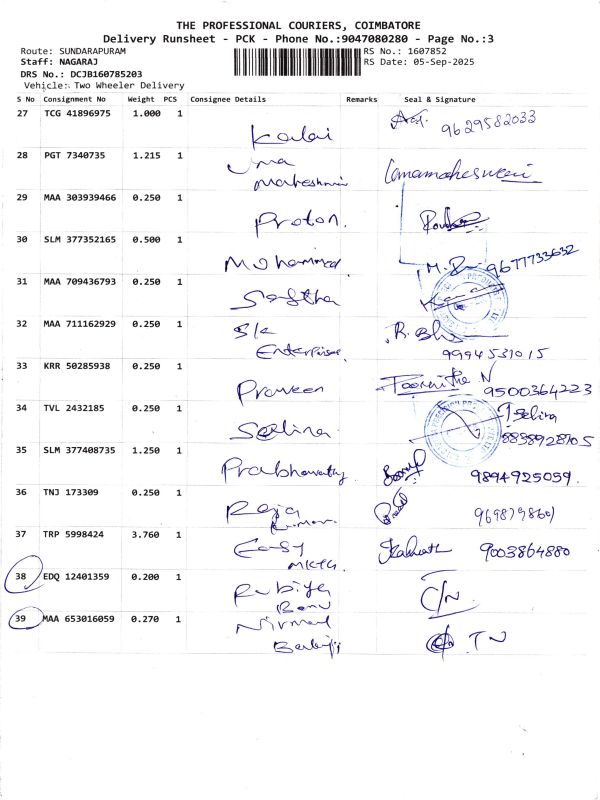 THE PROFESSIONAL COURIERS, COIMBATORE
Delivery Runsheet - PCK - Phone No.:9047080280 - Page No.:3
Route: SUNDARAPURAM RS No.: 1607852
Staff: NAGARAJ RS Date: 05-Sep-2025
DRS No.: DCJB160785203
Vehicle: Two Wheeler Delivery
S No Consignment No Weight PCS Consignee Details Remarks Seal & Signature
27 TCG 41896975 1.000 1 Kalai 9629582033
28 PGT 7340735 1.215 1 Uma
Maheshwari Umamaheswari
29 MAA 303939466 0.250 1 Proton.
30 SLM 377352165 0.500 1 Mohammed 9677733632
31 MAA 709436793 0.250 1
32 MAA 711162929 0.250 1 S/K
Enterprises 9994531015
33 KRR 50285938 0.250 1 Praveen 9500364223
34 TVL 2432185 0.250 1 Selina Tselina
35 SLM 377408735 1.250 1 Prabhavathy 9894925059.
36 TNJ 173309 0.250 1 Raja
Kumar.
37 TRP 5998424 3.760 1 Easy
MKTG 9003864880
38 EDQ 12401359 0.200 1 Rubiya
Banu C/N
39 MAA 653016059 0.270 1 Nirmal IN